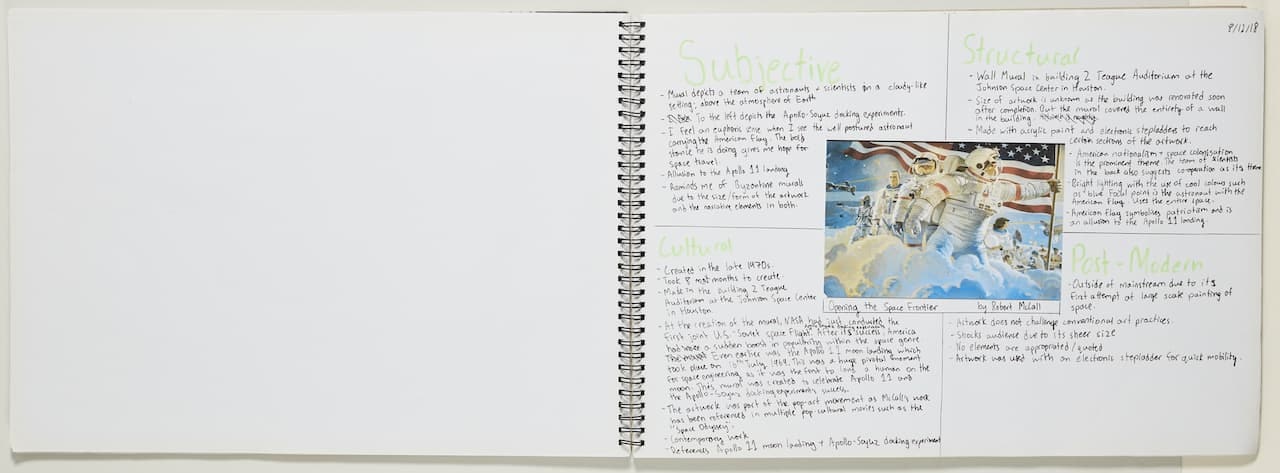 9/12/18
Subjective
- Mural depicts a team of astronauts + scientists in a cloudy-like
setting; above the atmosphere of Earth
- To the left depicts the Apollo-Soyuz docking experiments.
- I feel an euphoric vibe when I see the well postured astronaut
carrying the American flag. The bold
stance he is doing gives me hope for
space travel.
- Allusion to the Apollo 11 landing
- Reminds me of Byzantine murals
due to the size/form of the artwork
and the narrative elements in both.
Structural
- Wall Mural in building 2 Teague Auditorium at the
Johnson Space Center in Houston.
- Size of artwork is unknown as the building was renovated soon
after completion. But the mural covered the entirety of a wall
in the building.
- Made with acrylic paint and electronic stepladders to reach
certain sections of the artwork.
- American nationalism + space colonisation
is the prominent theme. The team of scientists
in the back also suggests co-operation as it's theme
- Bright lighting with the use of cool colours such
as blue. Focal point is the astronaut with the
American Flag. Uses the entire space.
- American flag symbolises patriotism and is
an allusion to the Apollo 11 landing.
Opening the Space Frontier by Robert McCall
Cultural
- Created in the late 1970s.
- Took 8 months to create.
- Made in the Building 2 Teague
Auditorium at the Johnson Space Center
in Houston.
- At the creation of the mural, NASA had just conducted the
first joint U.S.-Soviet space flight. After its success, America
had a sudden boost in popularity within the space genre
Even earlier was the Apollo 11 moon landing which
took place on July 1969. This was a huge pivotal moment
for space engineering as it was the first to land a human on the
moon. This mural was created to celebrate Apollo 11 and
the Apollo-Soyuz docking experiments success.
- The artwork was part of the pop-art movement as McCall's work
has been referenced in multiple pop cultural movies such as the
"Space Odyssey".
- Contemporary work
- References Apollo 11 moon landing + Apollo-Soyuz docking experiment
Post-Modern
- Outside of mainstream due to its
first attempt at large scale painting of
space.
- Artwork does not challenge conventional art practices.
- Shocks audience due to its sheer size
- No elements are appropriated/quoted
- Artwork was used with an electronic stepladder for quick mobility.